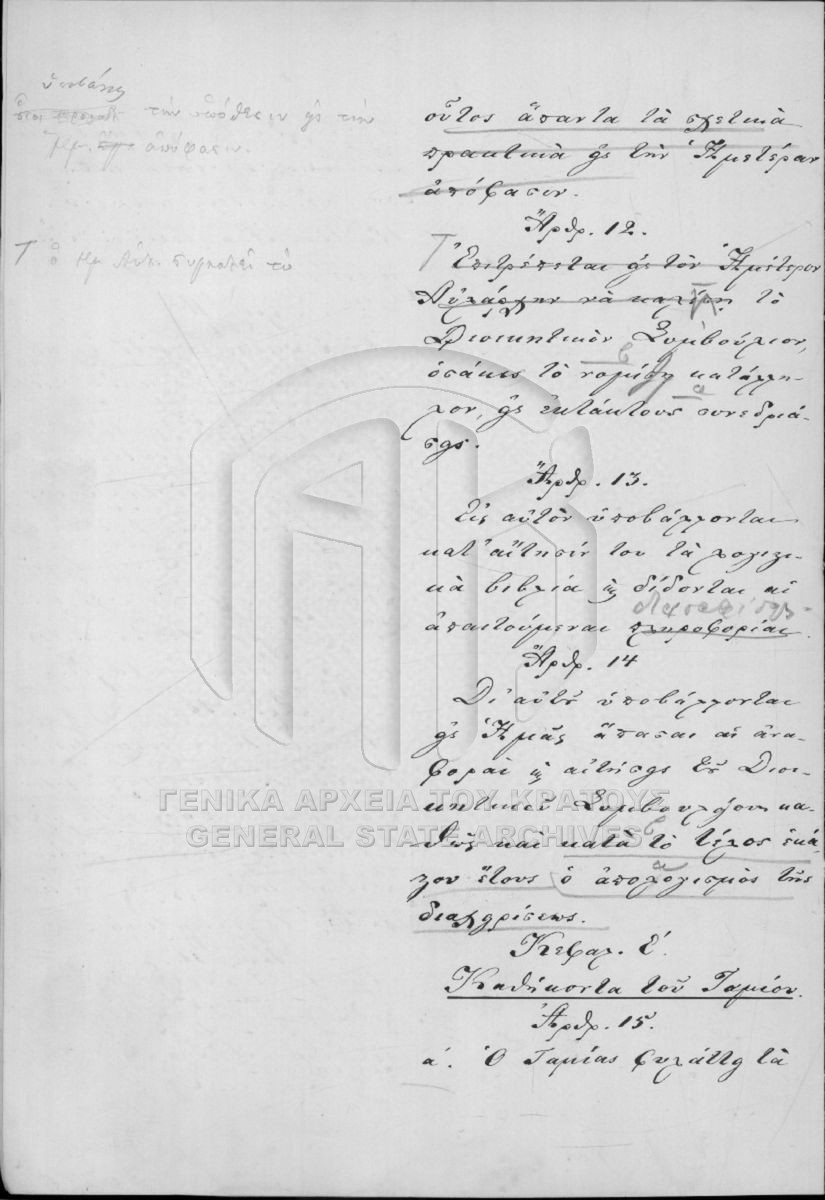 τὴν ὑπόθεσιν εἰς τὴν
Ἡμ. ἀπόφασιν.
Τ ὁ Ἡμ Αὐλ. συγκαλεῖ τὸ
οὗτος ἅπαντα τὰ σχετικὰ
πρακτικὰ εἰς τὴν Ἡμετέραν
ἀπόφασιν.
Ἄρθρ. 12.
Τ Ἐπιτρέπεται εἰς τὸν Ἡμέτερον
Αὐλάρχην νὰ καλέσῃ τὸ
Διοικητικὸν Συμβούλιον,
ὁσάκις τὸ νομίσῃ κατάλλη-
λον, εἰς ἐκτάκτους συνεδριά-
σεις.
Ἄρθρ. 13.
Εἰς αὐτὸν ὑποβάλλονται
κατ' αἴτησίν του τὰ λογιστι-
κὰ βιβλία καὶ δίδονται αἱ
ἀπαιτούμεναι πληροφορίαι.
Ἄρθρ. 14
Δι' αὐτοῦ ὑποβάλλονται
εἰς Ἡμᾶς ἅπασαι αἱ ἀνα-
φοραὶ καὶ αἰτήσεις τοῦ Διοι-
κητικοῦ Συμβουλίου κα-
θὼς καὶ κατὰ τὸ τέλος ἑκά-
στου ἔτους ὁ ἀπολογισμὸς τῆς
διαχειρίσεως.
Κεφαλ. Ε'.
Καθήκοντα τοῦ Ταμίου.
Ἄρθρ. 15.
α'. Ὁ Ταμίας φυλάττει τὰ
ΓΕΝΙΚΑ ΑΡΧΕΙΑ ΤΟΥ ΚΡΑΤΟΥΣ
GENERAL STATE ARCHIVES